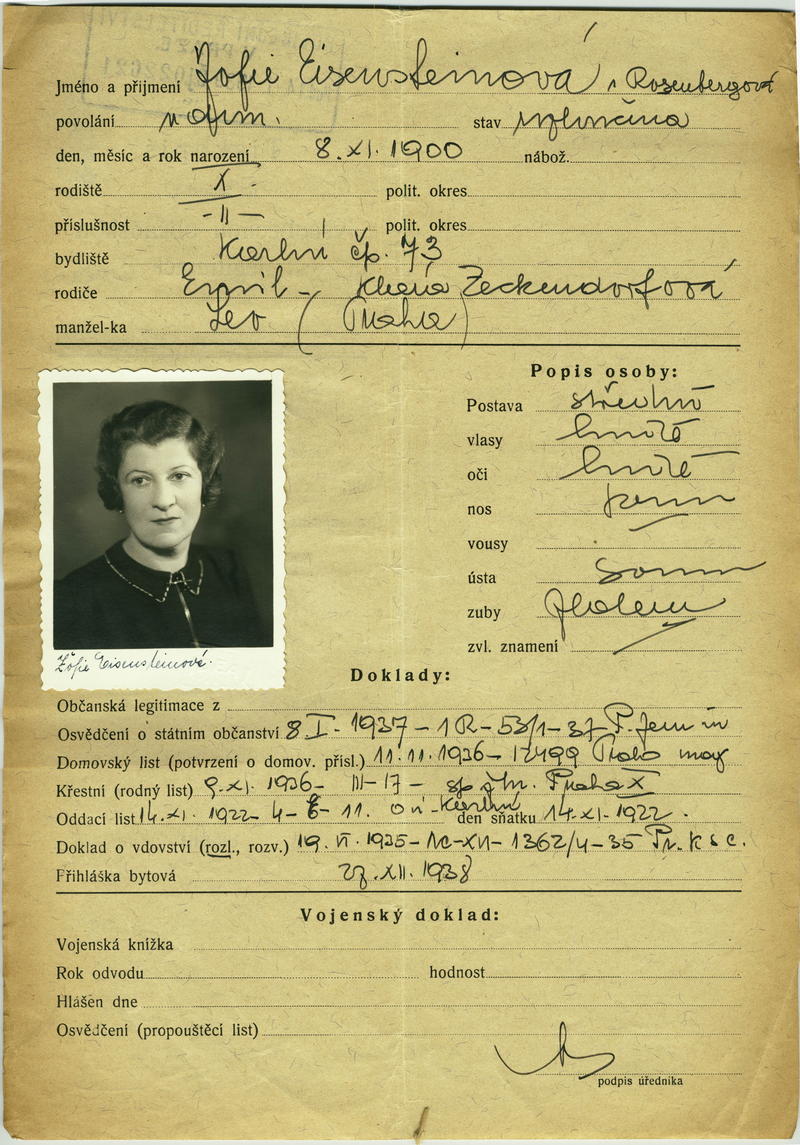 Jméno a přijmení Žofie Eisensteinová, r. Rosenbergová
povolání stav
den, měsíc a rok narození 8. XI. 1900 nábož.
rodiště X. polit. okres
příslušnost -II- polit. okres
bydliště Karlín čp. 73
rodiče Emil - Klára Zeckendorfová
manžel-ka Leo (Praha)
Popis osoby:
Postava střední
vlasy hnědé
oči hnědé
nos
vousy
ústa
zuby
zvl. znamení
Žofie Eisensteinová.
Doklady:
Občanská legitimace z
Osvědčení o státním občanství 8 I. 1937 - 1R-53/1-37
Domovský list (potvrzení o domov. přísl.) 11.11.1936 - 12499 Praha mag
Křestní (rodný list) 9.XI. 1936 - III-17 - Praha X
Oddací list 14.XI. 1922 - 11. Karlín den sňatku 14.XI. 1922.
Doklad o vdovství (rozl., rozv.) 19. VI. 1935 - 1362/4-35
Přihláška bytová 27. XII. 1938
Vojenský doklad:
Vojenská knížka
Rok odvodu hodnost
Hlášen dne
Osvědčení (propouštěcí list)
podpis úředníka